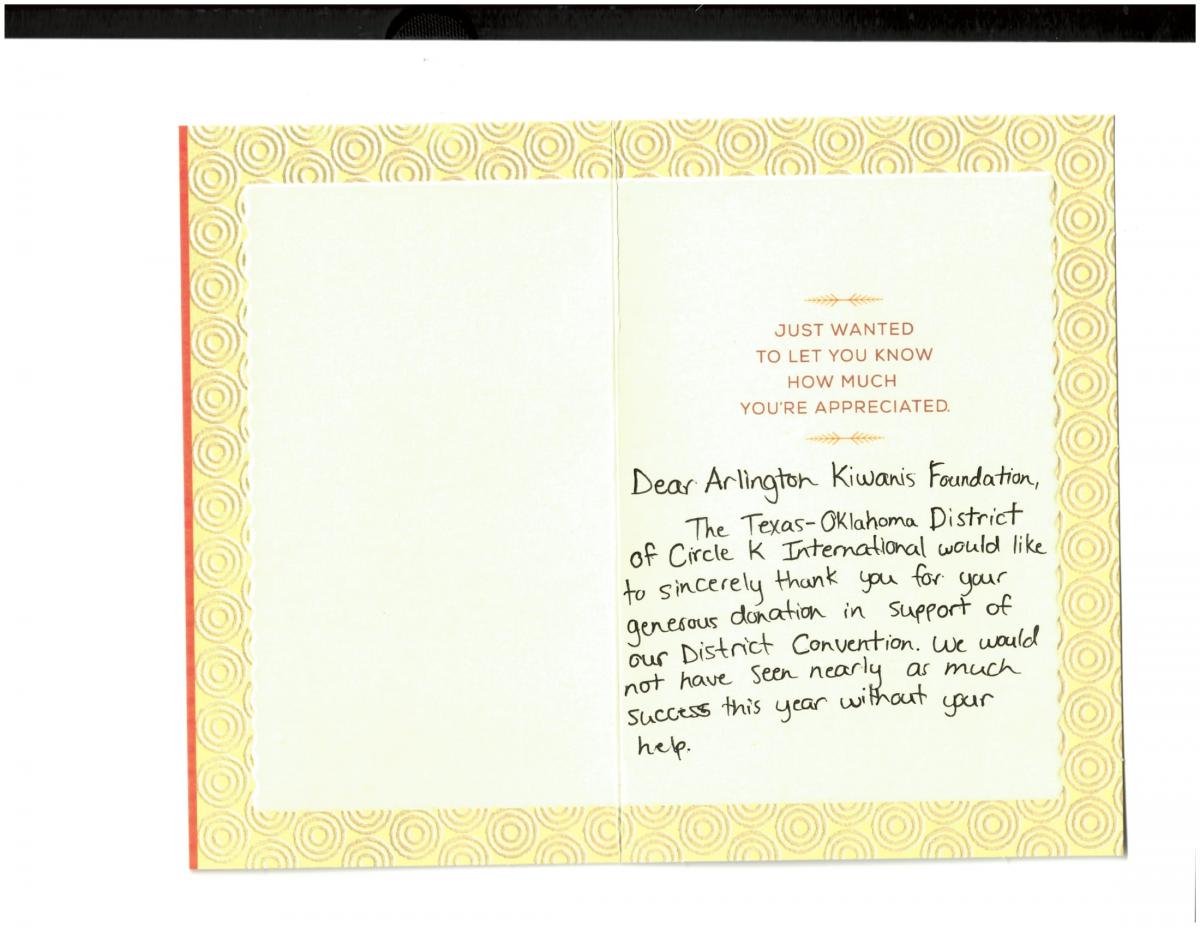 JUST WANTED
TO LET YOU KNOW
HOW MUCH
YOU'RE APPRECIATED.
Dear Arlington Kiwanis Foundation,
The Texas-Oklahoma District
of Circle K International would like
to sincerely thank you for your
generous donation in support of
our District Convention. We would
not have seen nearly as much
success this year without your
help.